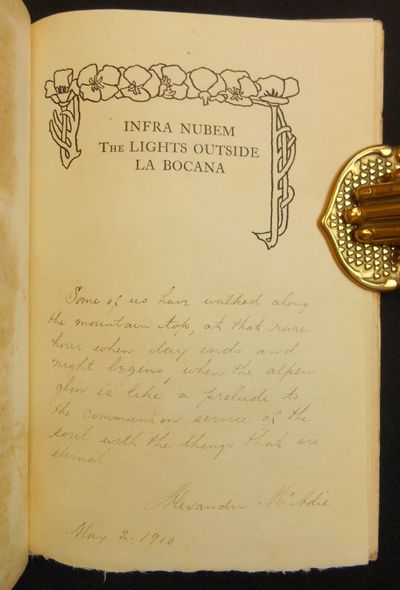 INFRA NUBEM
The LIGHTS OUTSIDE
LA BOCANA
Some of us have walked along
the mountain top, at that rare
hour when day ends and
night begins, when the alpen
glow is like a prelude to
the communion service of the
soul with the things that are
eternal.
Alexander McAdie
May 2. 1910